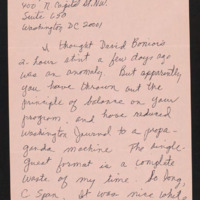 400 N. Capitol St. NW.
Suite 650
Washington DC 20001
I thought David Bonior's
2-hour stint a few days ago
was an anomaly. But apparently
you have thrown out the
principle of balance on your
program, and have reduced
Washington Journal to a propa-
ganda machine. The single-
guest format is a complete
waste of my time. So long,
C Span, it was nice while